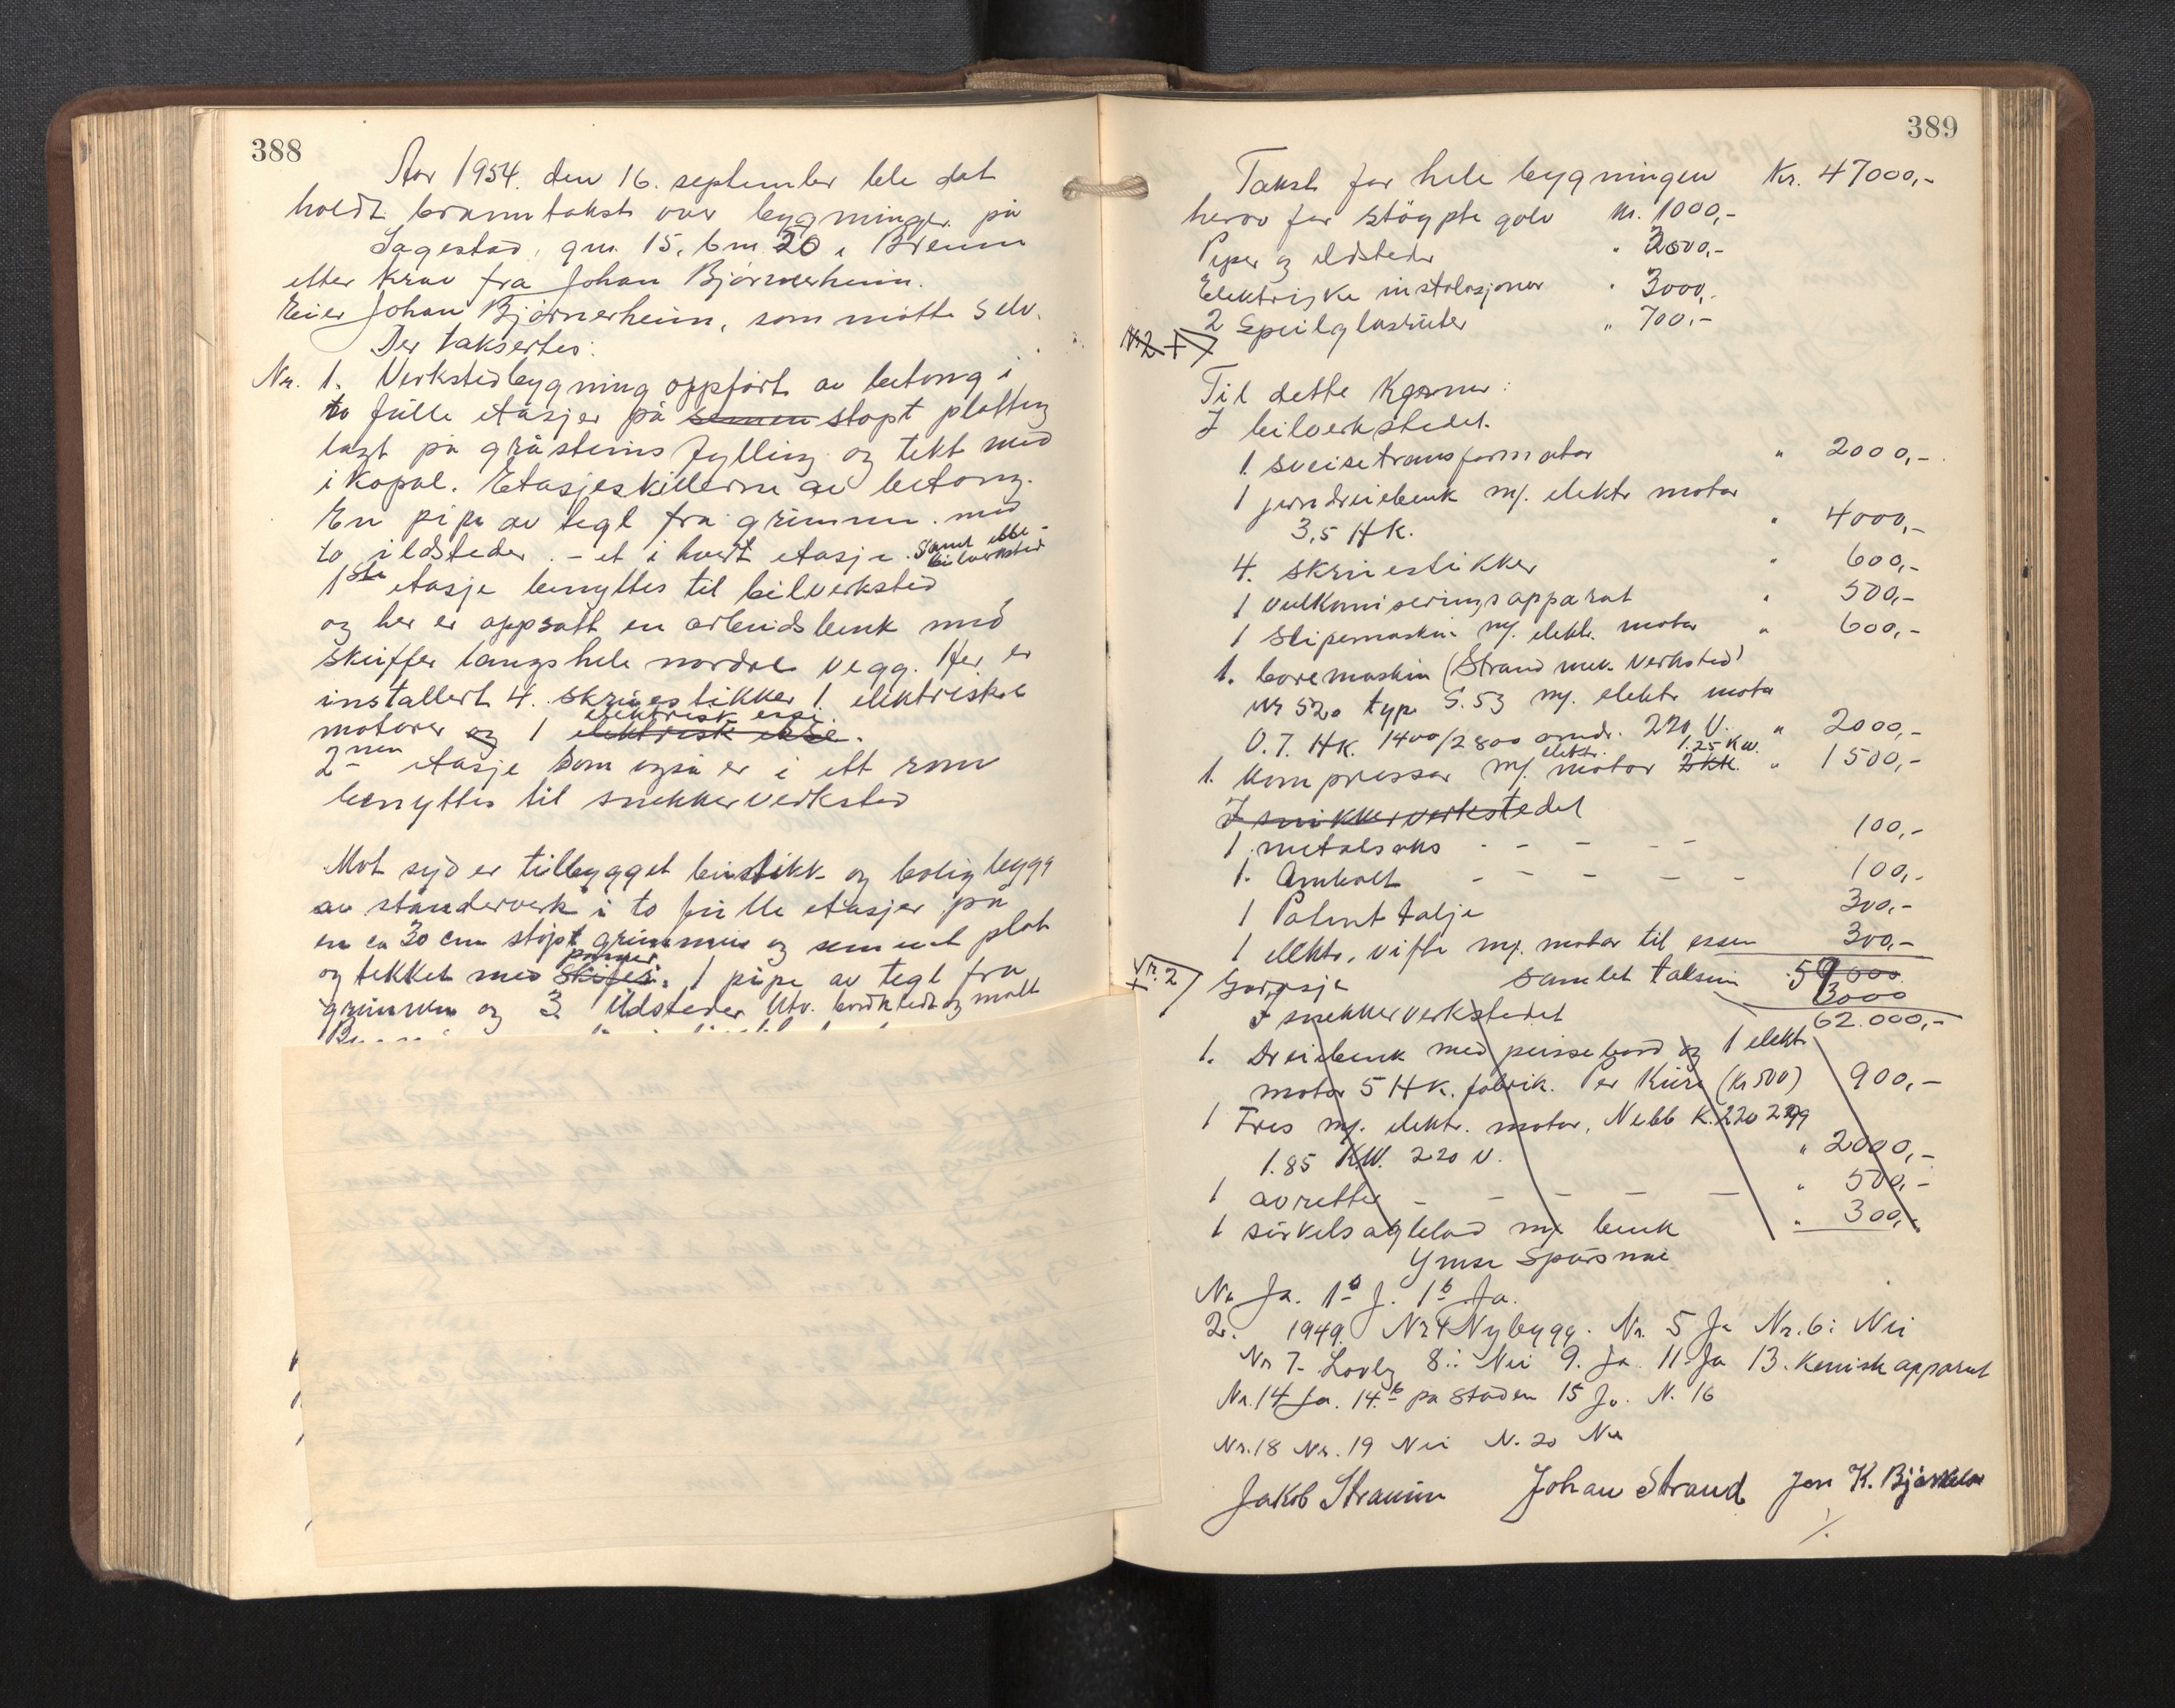 388
Aar 1954. den 16. september ble det
holdt branntakst over bygninger på
Sagestad, gnr. 15, bnr. 20 i Breim
etter krav fra Johan Bjørnerheim.
Eier Johan Bjørnerheim, som møtte selv.
Der taksertes:
Nr. 1. Verkstedbygning oppført av betong i
to fulle etasjer på støpt platting
lagt på gråsteins fylling og tekt med
ikopal. Etasjeskillerne av betong.
En pipe av tegl fra grunnen med
to ildsteder - et i hvert etasje. Samt
bilverksted
1ste etasje benyttes til bilverksted
og her er oppsatt en arbeidsbenk med
skuffer langs hele nordre vegg. Her er
installert 4. skruestikker 1. elektriske
elektrisk essi.
motorer og 1 elektrisk esse.
2nen etasje som også er i ett rom
benyttes til snekkerverksted
Mot syd er tilbygget butikk og boligbygg
av standerverk i to fulle etasjer på
en ca 30 cm støpt grunnmur og sement plat
panner
og tekket med skifer. 1 pipe av tegl fra
grunnen og 3 ildsteder utv. bordkledt og malt
389
Takst for hele bygningen Kr. 47000,-
herav for støypte golv kr. 1000,-
Piper og ildsteder " 2500,-
Elektriske instalasjoner " 3000,-
2 Speilglassruter " 700,-
Nr 2
Til dette kommer:
I bilverkstedet.
1. sveisetransformator " 2000,-
1 jerndreiebenk m/. elektr motor
3,5 HK. " 4000,-
4. skruestikker " 600,-
1 vulkaniseringsapparat " 500,-
1 slipemaskin m/. elektr. motor " 600,-
1. boremaskin (Strand mek. Verksted)
Nr 520 type S.53 m/. elektr motor
0.7. HK. 1400/2800 omdr. 220 V. " 2000,-
elektr. 1.25 Kw.
1. kompressor m/. motor " 1500,-
I snikkerverkstedet
1. metalsaks - - - - - 100,-
1. Ambolt - - - - - 100,-
1 Patent talje 300,-
1 elektr. vifte m/. motor til essen 300,-
Nr. 2
samlet taksum 59000
3000
I snekkerverkstedet 62.000,-
1. Dreiebenk med pussebord og 1 elektr.
motor 5 HK. fabrik. Per Kure (Kr 500) 900,-
1 Fres m/. elektr. motor, Nebb K.220 299
1.85 KW. 220 V. " 2000,-
1 avretter - - - - - " 500,-
1 sirkelsagblad m/ benk " 300,-
Ymse Spørsmål
Nr Ja. 1b J. 1b Ja.
2. 1949. Nr 4 Nybygg. Nr. 5 Ja Nr. 6: Nei
Nr 7. Lovlg 8.: Nei 9. Ja 11. Ja 13. Kemisk apparat
Nr. 14 Ja. 14.b på staden 15 Ja. N. 16
Nr. 18 Nr. 19 Nei N. 20 Nei
Jakob Straume Johan Strand Jon K. Bjørkelo